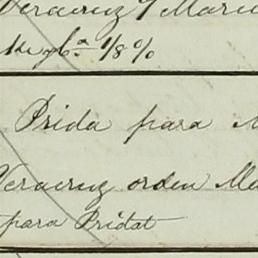 Veracruz y Mari
1/8 %
Prida para
Veracruz orden Ma
para Pridat